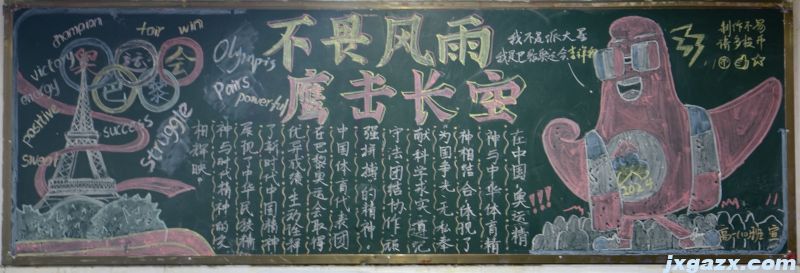 champion
fair
win
victory
energy
positive
奥运会
巴黎
Olympis
Paris
powerful
success
struggle
不畏风雨
鹰击长空
我不是派大星
我是巴黎奥运会吉祥物
制作不易
请多投币
在中国,奥运精
神与中华体育精
神相结合,体现了
为国争光、无私奉
献、科学求实、遵纪
守法、团结协作、顽
强拼搏的精神。
中国体育代表团
在巴黎奥运会取得
优异成绩,生动诠释
了新时代中国精神,
展现了中华民族精
神与时代精神的交
相辉映。
2024
!!!
高一(1)班宣
jxgazx.com